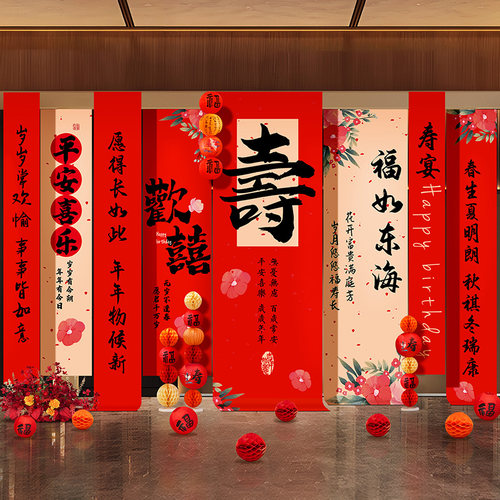 岁岁常欢愉 事事皆如意
平安喜乐
岁岁有今朝
年年有今日
愿得长如此 年年物候新
歡囍
Happy
birthday
壽
平安喜樂
福如东海
花开富贵满庭芳
岁月悠悠福寿长
寿宴
Happy birthday
春生夏明朗 秋祺冬瑞康
福
福
寿